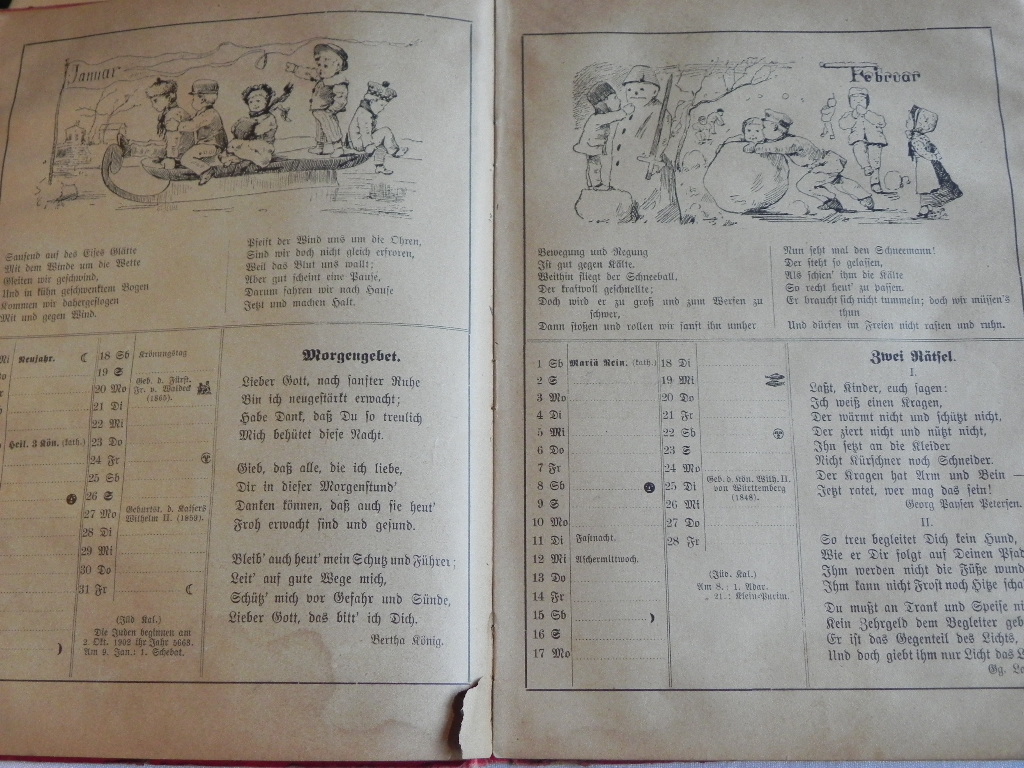 Januar
Sausend auf des Eises Glätte
Mit dem Winde um die Wette
Gleiten wir geschwind,
Und in kühn geschwenktem Bogen
Kommen wir dahergeflogen
Mit und gegen Wind.
Pfeift der Wind uns um die Ohren,
Sind wir doch nicht gleich erfroren,
Weil das Blut uns wallt;
Aber gut scheint eine Pause,
Darum fahren wir nach Hause
Jetzt und machen Halt.
Mi Neujahr.
Heil. 3 Kön. (kath.)
18 Sb Krönungstag
19 S
20 Mo Geb. d. Fürst. Fr. v. Waldeck (1865).
21 Di
22 Mi
23 Do
24 Fr
25 Sb
26 S
27 Mo Geburtst. d. Kaisers Wilhelm II. (1859).
28 Di
29 Mi
30 Do
31 Fr
(Jüd. Kal.)
Die Juden beginnen am
2. Okt. 1902 ihr Jahr 5663.
Am 9. Jan.: 1. Schebat.
Morgengebet.
Lieber Gott, nach sanfter Ruhe
Bin ich neugestärkt erwacht;
Habe Dank, daß Du so treulich
Mich behütet diese Nacht.
Gieb, daß alle, die ich liebe,
Dir in dieser Morgenstund'
Danken können, daß auch sie heut'
Froh erwacht sind und gesund.
Bleib' auch heut' mein Schutz und Führer;
Leit' auf gute Wege mich,
Schütz' mich vor Gefahr und Sünde,
Lieber Gott, das bitt' ich Dich.
Bertha König.
Februar
Bewegung und Regung
Ist gut gegen Kälte.
Weithin fliegt der Schneeball,
Der kraftvoll geschnellte;
Doch wird er zu groß und zum Werfen zu
schwer,
Dann stoßen und rollen wir sanft ihn umher
Nun seht mal den Schneemann!
Der steht so gelassen,
Als schien' ihm die Kälte
So recht heut' zu passen.
Er braucht sich nicht tummeln; doch wir müssen's
thun
Und dürfen im Freien nicht rasten und ruhn.
1 Sb Mariä Rein. (kath.)
2 S
3 Mo
4 Di
5 Mi
6 Do
7 Fr
8 Sb
9 S
10 Mo
11 Di Fastnacht.
12 Mi Aschermittwoch.
13 Do
14 Fr
15 Sb
16 S
17 Mo
18 Di
19 Mi
20 Do
21 Fr
22 Sb
23 S
24 Mo
25 Di Geb. d. Kön. Wilh. II. von Württemberg (1848).
26 Mi
27 Do
28 Fr
(Jüd. Kal.)
Am 8.: 1. Adar.
„ 21.: Klein-Purim.
Zwei Rätsel.
I.
Laßt, Kinder, euch sagen:
Ich weiß einen Kragen,
Der wärmt nicht und schützt nicht,
Der ziert nicht und nützt nicht,
Ihn setzt an die Kleider
Nicht Kürschner noch Schneider.
Der Kragen hat Arm und Bein —
Jetzt ratet, wer mag das sein!
Georg Paysen Petersen.
II.
So treu begleitet Dich kein Hund,
Wie er Dir folgt auf Deinen Pfad
Ihm werden nicht die Füße wund
Ihm kann nicht Frost noch Hitze scha
Du mußt an Trank und Speise ni
Kein Zehrgeld dem Begleiter geb
Er ist das Gegenteil des Lichts,
Und doch giebt ihm nur Licht das L
Gg.